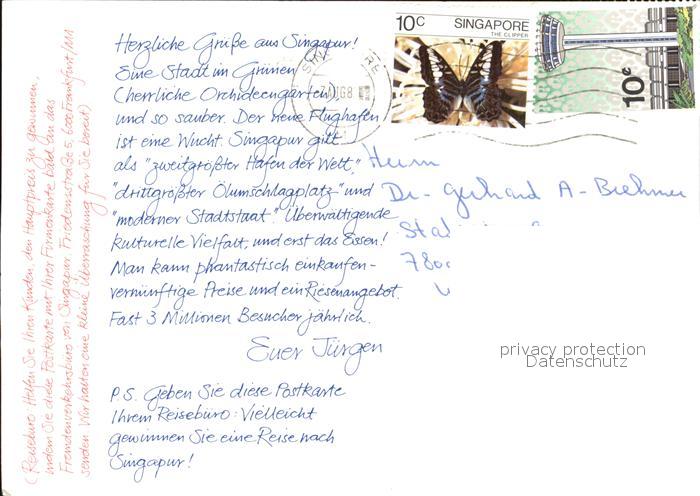 Herzliche Grüße aus Singapur!
Eine Stadt im Grünen
(herrliche Orchideengärten)
und so sauber. Der neue Flughafen
ist eine Wucht. Singapur gilt
als "zweitgrößter Hafen der Welt,"
"drittgrößter Ölumschlagplatz" und
"moderner Stadtstaat". Überwältigende
kulturelle Vielfalt, und erst das Essen!
Man kann phantastisch einkaufen-
vernünftige Preise und ein Riesenangebot.
Fast 3 Millionen Besucher jährlich.
Euer Jürgen
P.S. Geben Sie diese Postkarte
Ihrem Reisebüro: Vielleicht
gewinnen Sie eine Reise nach
Singapur!
(Reisebüro: Helfen Sie Ihren Kunden, den Hauptpreis zu gewinnen,
indem Sie diese Postkarte mit Ihrer Firmenkarte bald an das
Fremdenverkehrsbüro von Singapur, Friedensstraße 5, 6000 Frankfurt/M1
senden. Wir halten eine kleine Überraschung für Sie bereit)
10c SINGAPORE
THE CLIPPER
10c
Herrn
Dr. Gerhard A.
780
privacy protection
Datenschutz